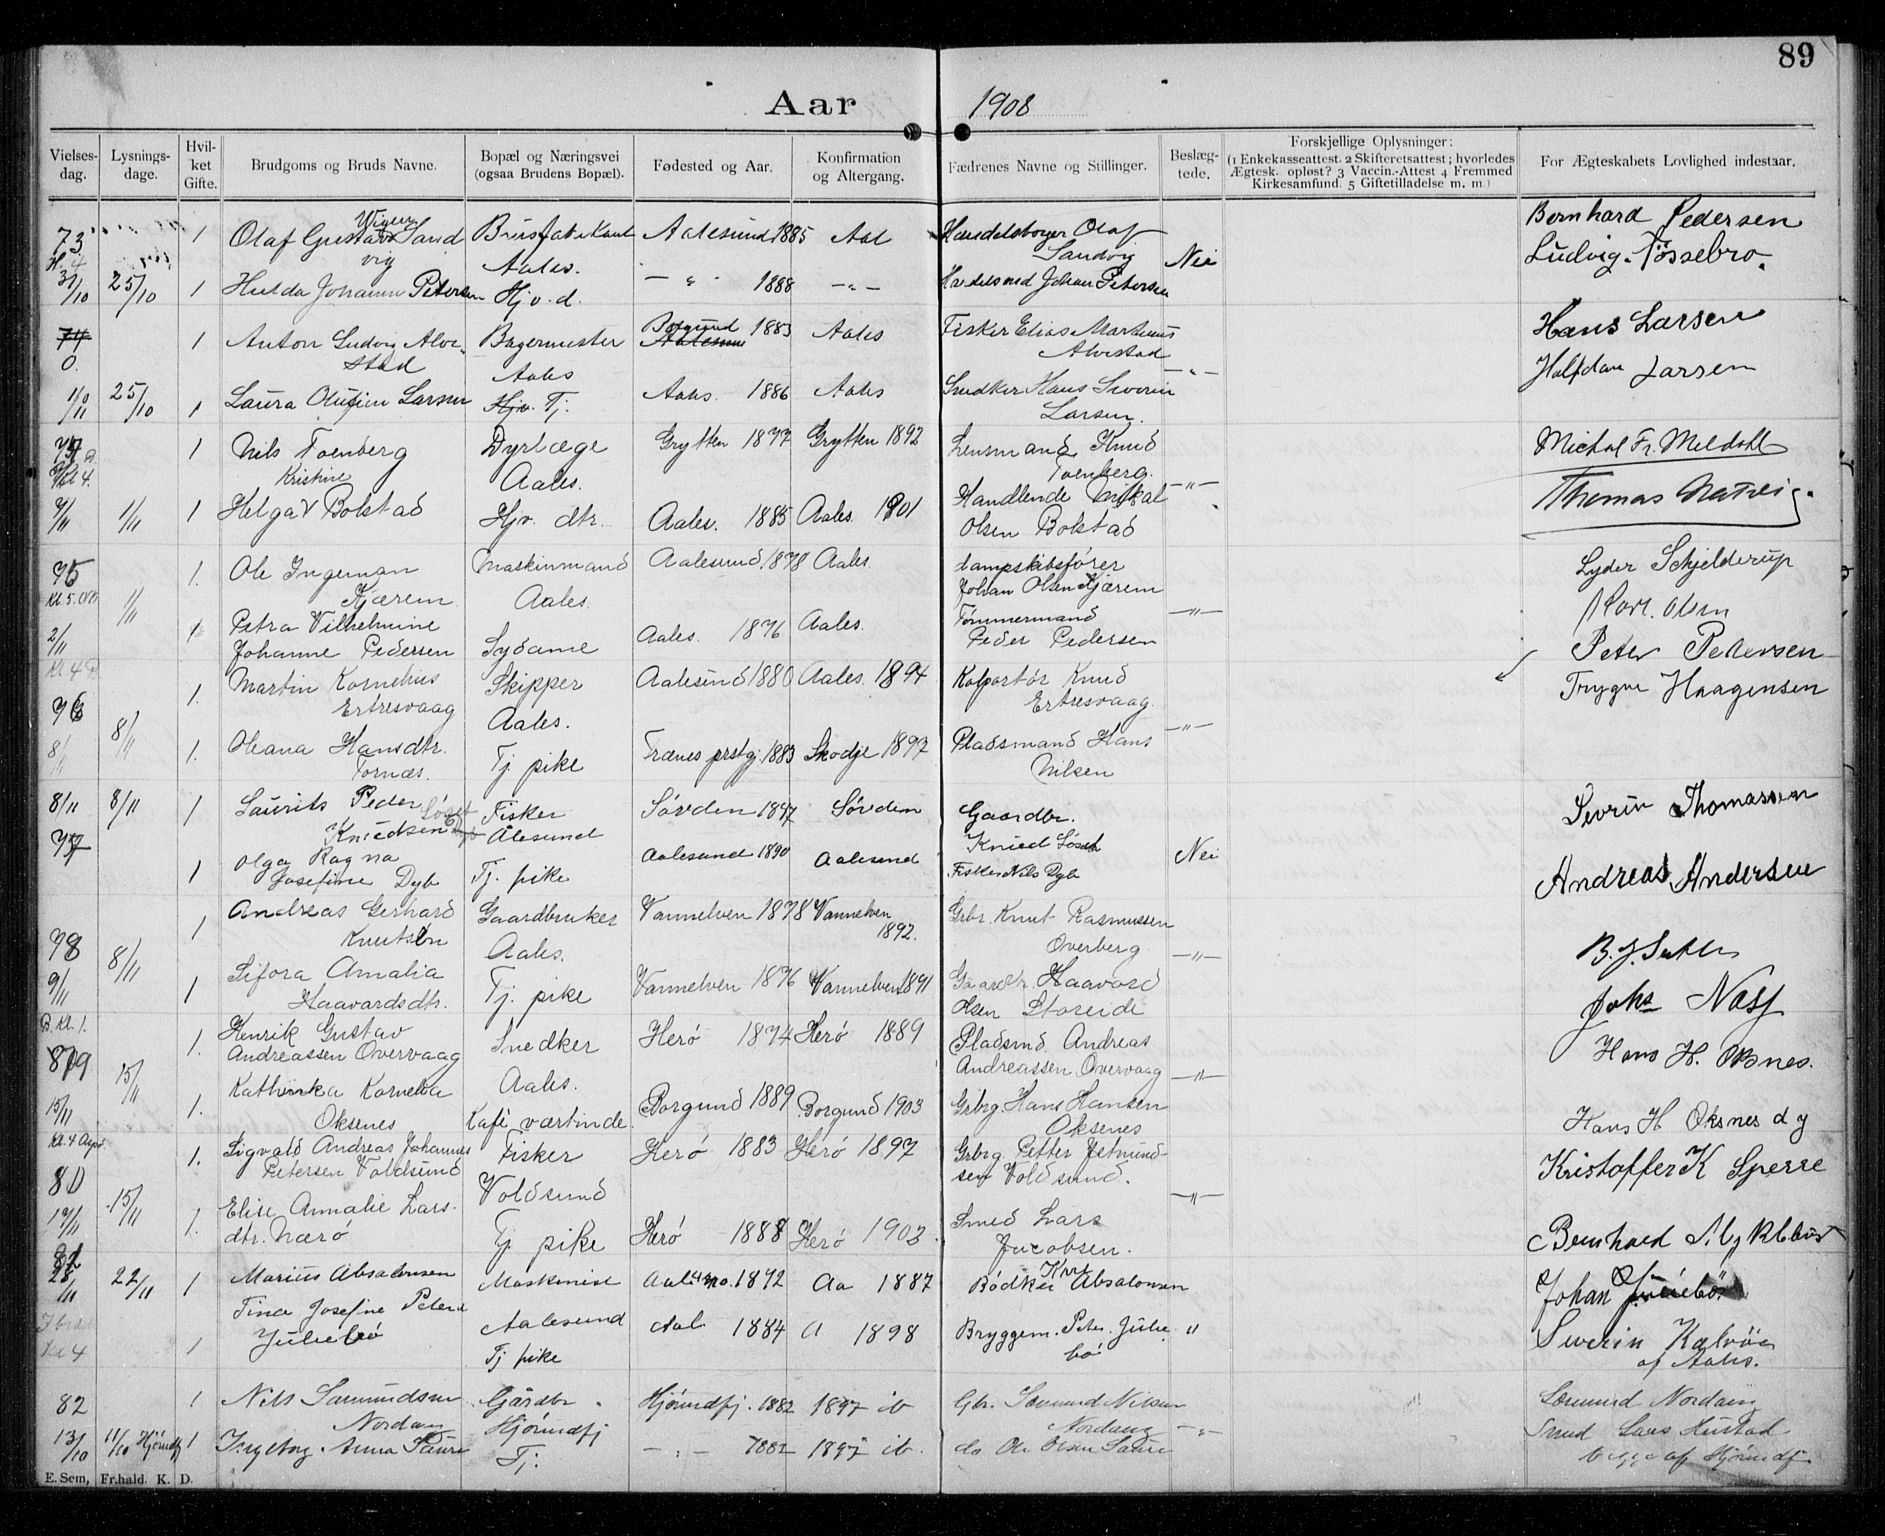 89
Aar 1908
Vielses-dag. Lysnings-dage. Hvil-ket Gifte. Brudgoms og Bruds Navne. Bopæl og Næringsvei (ogsaa Brudens Bopæl). Fødested og Aar. Konfirmation og Altergang. Fædrenes Navne og Stillinger. Beslæg-tede. Forskjellige Oplysninger: (1 Enkekasseattest. 2 Skifteretsattest; hvorledes Ægtesk. opløst? 3 Vaccin.-Attest 4 Fremmed Kirkesamfund. 5 Giftetilladelse m. m.) For Ægteskabets Lovlighed indestaar.
73 1 Olaf Gustav Wigen Sand Brusfabrikant Aalesund 1885 Aal Handelsborger Olaf Bernhard Pedersen
vig Aales. Sandvig Nei Ludvig Tøssebro.
31/10 25/10 1 Hulda Johanne Petersen Hj. v. d. — " — 1888 — " — Handelsmd Johan Petersen
74 1 Anton Ludvig Alve- Bagermester Borgund 1883 Aales Fisker Elias Martinus Hans Larsen
0. stad Aales Aalesund Alvestad — " — Halfdan Larsen
1/11 25/10 1 Laura Olufine Larsen Hjv. Tj. Aales. 1886 Aales Snedker Hans Severin
Larsen.
1 Nils Toenberg Dyrlæge Grytten 1877 Grytten 1892 Lensmand Knud Michal Fr. Meldahl
Kristine Aales. Toenberg. — " —
1/11 1 Helga Bolstad Hjv. dtr. Aales. 1885 Aales. 1901 Handlende Mikal Thomas Natvig.
Olsen Bolstad
75 1. Ole Ingeman Maskinmand Aalesund 1878 Aales. Dampskibsfører Lyder Schjelderup
1/11 Kjærem Aales. Johan Olsen Kjærem Olsen
2/11 1 Petra Vilhelmine Aales. 1876 Aales. Tømmermand — " —
Johanne Pedersen Sydame Peder Pedersen Peter Pedersen
1. Martin Kornelius Skipper Aalesund 1880 Aales. 1894 Kolportør Knud Trygve Haagensen
76 Ertresvaag Aales. Ertresvaag. — " —
8/11 8/11 1. Oleana Hansdtr. Tj. pike Frænes prstgj. 1883 Skodje 1897 Pladsmand Hans
Tornæs. Nilsen
8/11 8/11 1 Laurits Peder Fisker Søvden 1887 Søvden Gaardbr. Sevrin Thomassen
77 Knudsen Ålesund Knud
1 Olga Ragna Aalesund 1890 Aalesund Nei Andreas Andersen
Josefine Dyb Tj. pike Fisker Nils Dyb
1 Andreas Gerhard Gaardbruker Vannelven 1878 Vannelven 1892. Grbr. Knut Rasmussen
78 8/11 Knutsen Aales. Overberg. — " —
9/11 1 Sifora Amalia Tj. pike Vannelven 1876 Vannelven 1891 Gaardbr. Haavard Johs Næss
Haavardsdtr. Olsen Storeide
B. Kl. 1. 1. Henrik Gustav Snedker Herø 1874 Herø 1889 Pladsmd. Andreas
79 15/11 Andreassen Overvaag Aales. Andreassen Overvaag — " — Hans H. Oksnes.
15/11 1. Kathinka Kornelia Kafé værtinde Borgund 1889 Borgund 1903 Grbrg. Hans Hansen
Oksenes Oksenes Hans H Oksnes d y
1. Sigvald Andreas Johannes Fisker Herø 1883 Herø 1897 Grbrg. Petter Jetmund- Kristoffer K Sperre
80 15/11 Petersen Voldsund Voldsund sen Voldsund. — " —
1. Elise Annalie Lars- Tj. pike Herø 1888 Herø 1903. Smed Lars
dtr. Nærø Jacobsen. Bernhard Myklebust
81 22/11 1 Marius Absalonsen Maskinist 1872 Aa 1887 Bødker Knut Absalonsen Johan
1 Tina Josefine Petera Aalesund Aal 1884 A 1898 Bryggem. Peter Julie- " Severin Kalvøe
Juliebø Tj pike bø af Aales.
82 1 Nils Sæmundsen Gårdbr. Hjørundfj. 1882 1897 ib Gbr. Sæmund Nilsen Sæmund Nordang
Nordang Hjørundfj Nordang — " —
13/10 11/10 Hjørundfj 1 Ingeborg Anna Saure Tj. — " — 1882 1897 ib. do Ole Olsen Saure Smed Lars Hustad
begge af Hjørundfj.
E. Sem, Fr.hald. K. D.